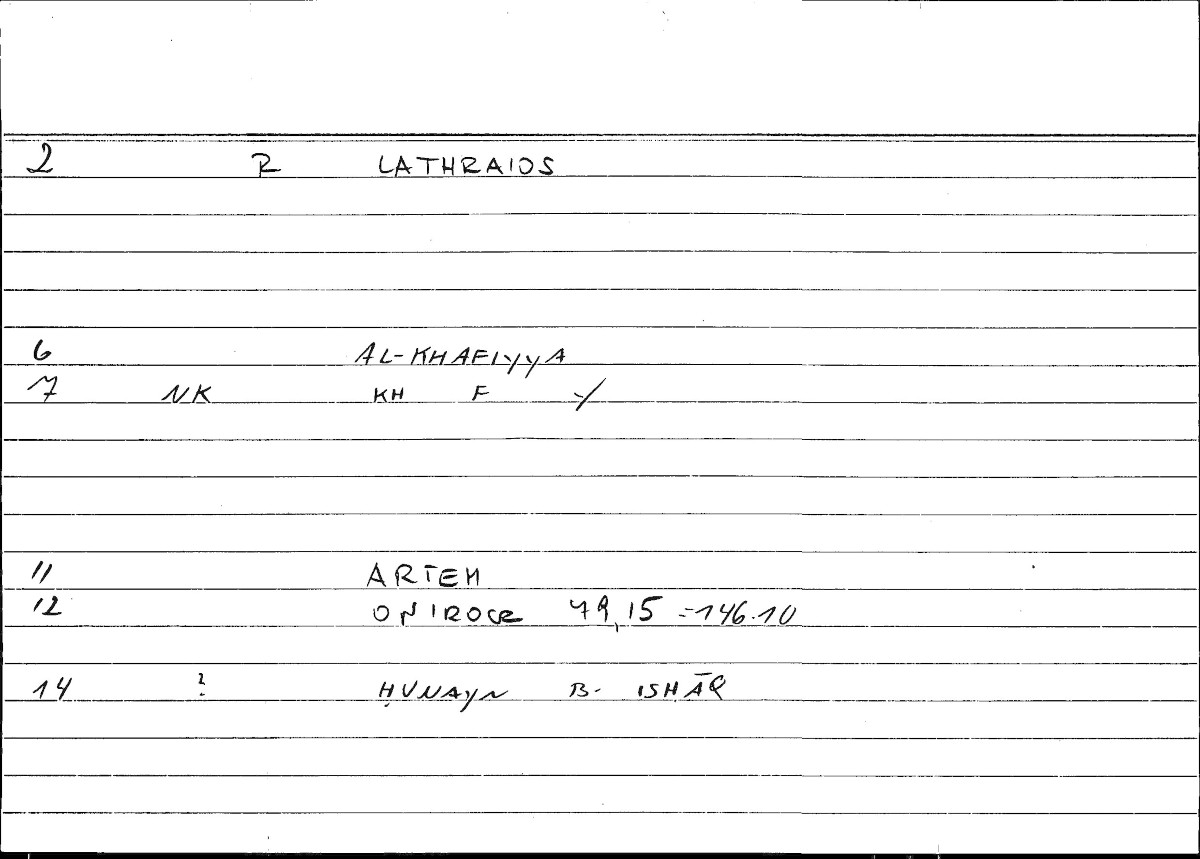 2 R LATHRAIOS
6 AL-KHAFIYYA
7 NK KH F Y
11 ARTEM
12 ONIROCR 79,15 = 146.10
14 ? ḤUNAYN B. ISḤĀQ